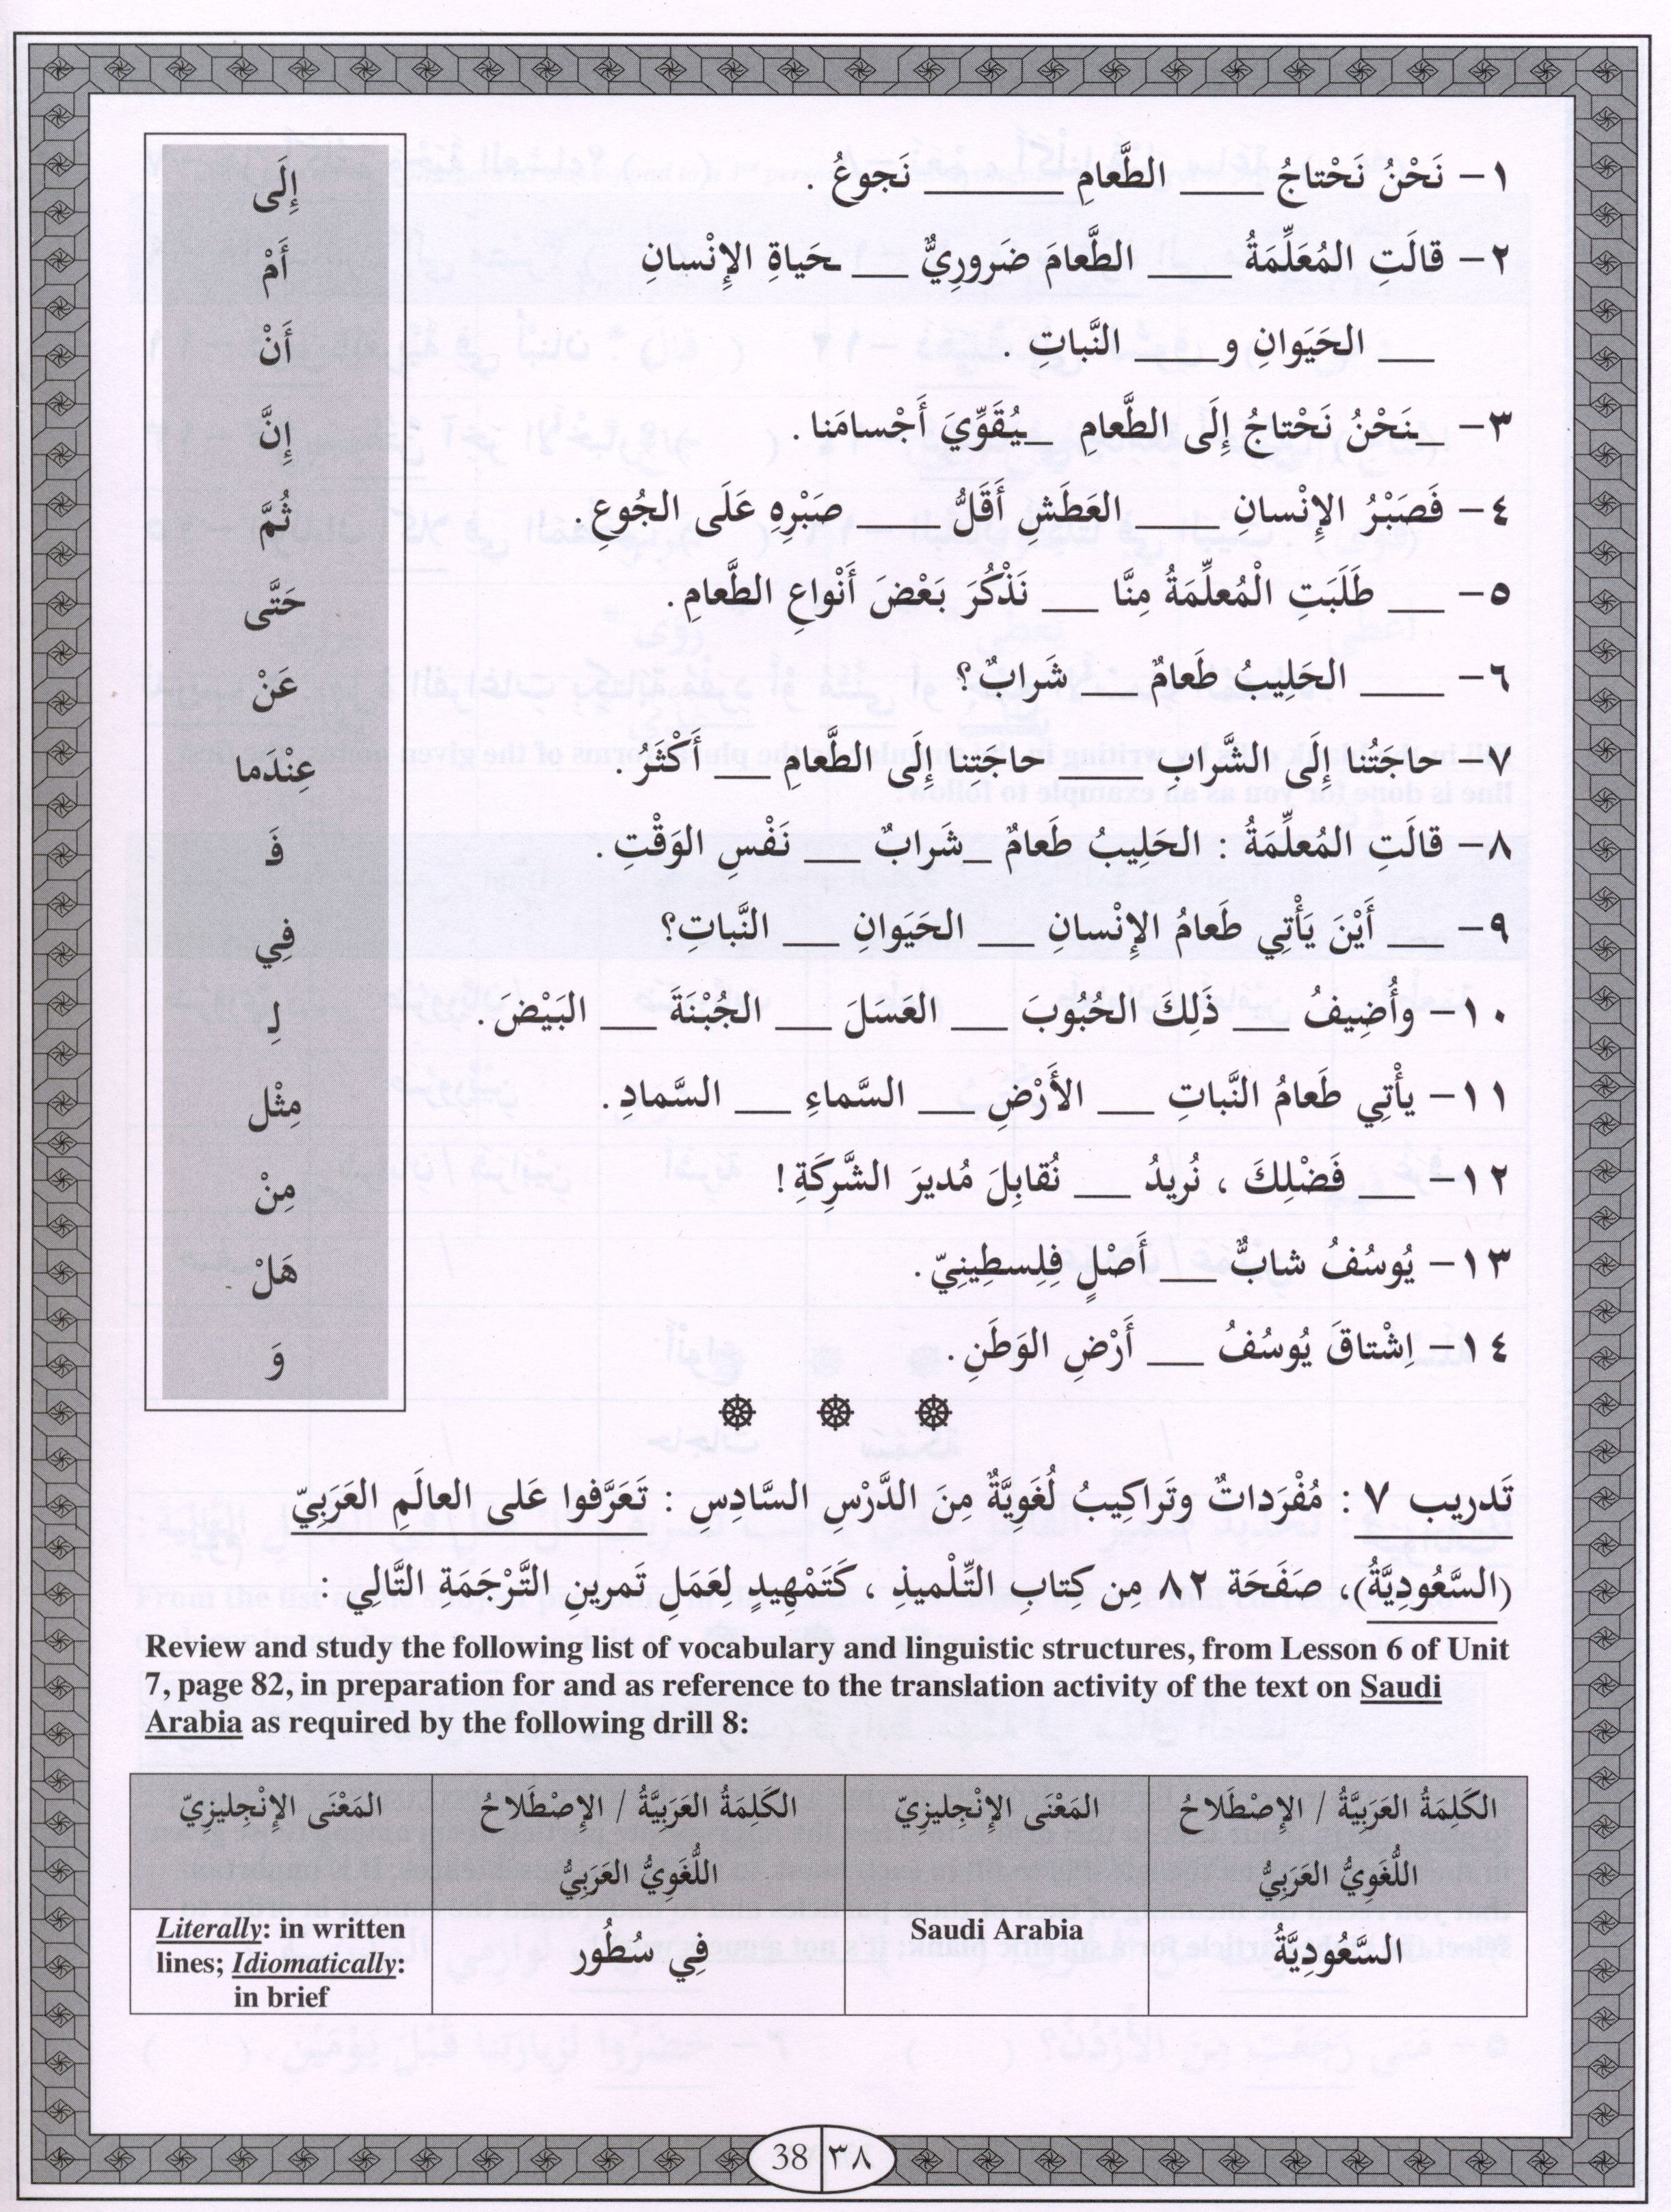 ١ – نَحْنُ نَحْتاجُ ____ الطَّعامِ ______ نَجوعُ .
٢ – قالَتِ المُعَلِّمَةُ ____ الطَّعامَ ضَرورِيٌّ ___ ـحَياةِ الإِنْسانِ
___ الحَيَوانِ و ____ النَّباتِ .
٣ – ـنَحْنُ نَحْتاجُ إِلَى الطَّعامِ __ ـيُقَوِّيَ أَجْسامَنا .
٤ – فَصَبْرُ الإِنْسانِ ____ العَطَشِ أَقَلُّ ____ صَبْرِهِ عَلَى الجُوعِ .
٥ – ___ طَلَبَتِ الْمُعلِّمَةُ مِنَّا ___ نَذْكُرَ بَعْضَ أَنْواعِ الطَّعامِ .
٦ – ____ الحَلِيبُ طَعامٌ ____ شَرابٌ؟
٧ – حاجَتُنا إِلَى الشَّرابِ ____ حاجَتِنا إِلَى الطَّعامِ ___ أَكْثَرُ .
٨ – قالَتِ المُعلِّمَةُ : الحَلِيبُ طَعامٌ _ شَرابٌ ___ نَفْسِ الوَقْتِ .
٩ – ___ أَيْنَ يَأْتِي طَعامُ الإِنْسانِ ___ الحَيَوانِ ___ النَّباتِ؟
١٠ – وأُضِيفُ ___ ذَلِكَ الحُبُوبَ ___ العَسَلَ ___ الجُبْنَةَ ___ البَيْضَ .
١١ – يأْتِي طَعامُ النَّباتِ ___ الأَرْضِ ___ السَّماءِ ___ السَّمادِ .
١٢ – ___ فَضْلِكَ ، نُرِيدُ ___ نُقابِلَ مُديرَ الشَّرِكَةِ !
١٣ – يُوسُفُ شابٌّ ___ أَصْلٍ فِلِسطِينِيّ .
١٤ – اِشْتاقَ يُوسُفُ ___ أَرْضِ الوَطَنِ .
إِلَى
أَمْ
أَنْ
إِنَّ
ثُمَّ
حَتَّى
عَنْ
عِنْدَما
فَـ
فِي
لِـ
مِثْل
مِنْ
هَلْ
وَ
تَدريب ٧ : مُفْرَداتٌ وتَراكِيبُ لُغَوِيَّةٌ مِنَ الدَّرْسِ السَّادِسِ : تَعَرَّفوا عَلى العالَمِ العَرَبِيّ
(السَّعُودِيَّةُ)، صَفَحَة ٨٢ من كِتابِ التِّلْميذِ ، كَتَمْهِيدٍ لعَمَلِ تَمرينِ التَّرْجَمَة التَّالي :
Review and study the following list of vocabulary and linguistic structures, from Lesson 6 of Unit
7, page 82, in preparation for and as reference to the translation activity of the text on Saudi
Arabia as required by the following drill 8:
الكَلِمَةُ العَرَبِيَّةُ / الإِصْطَلاحُ اللُّغَوِيُّ العَرَبِيُّ
المَعْنَى الإِنْجلِيزِيّ
الكَلِمَةُ العَرَبِيَّةُ / الإِصْطَلاحُ اللُّغَوِيُّ العَرَبِيُّ
المَعْنَى الإِنْجلِيزِيّ
السَّعُودِيَّةُ
Saudi Arabia
فِي سُطُور
Literally: in written
lines; Idiomatically:
in brief
38 | ٣٨